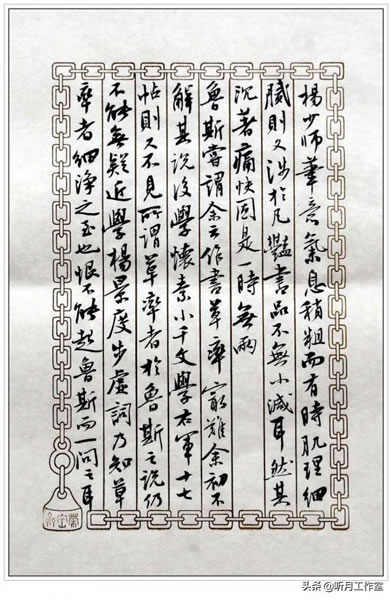 杨少师筆意氣息稍粗而有時肌理細
膩則又涉於凡豔書品不無小減耳然其
沉著痛快固是一時無兩
魯斯嘗謂余云作書草率寂難余初不
解其説後學懷素小千文學右軍十七
帖則又不見所謂草率者於魯斯之説仍
不能無疑近學楊景度步虛詞乃知草
率者細淨之至也恨不能起魯斯而一問之耳
榮宝
头条 @听月工作室